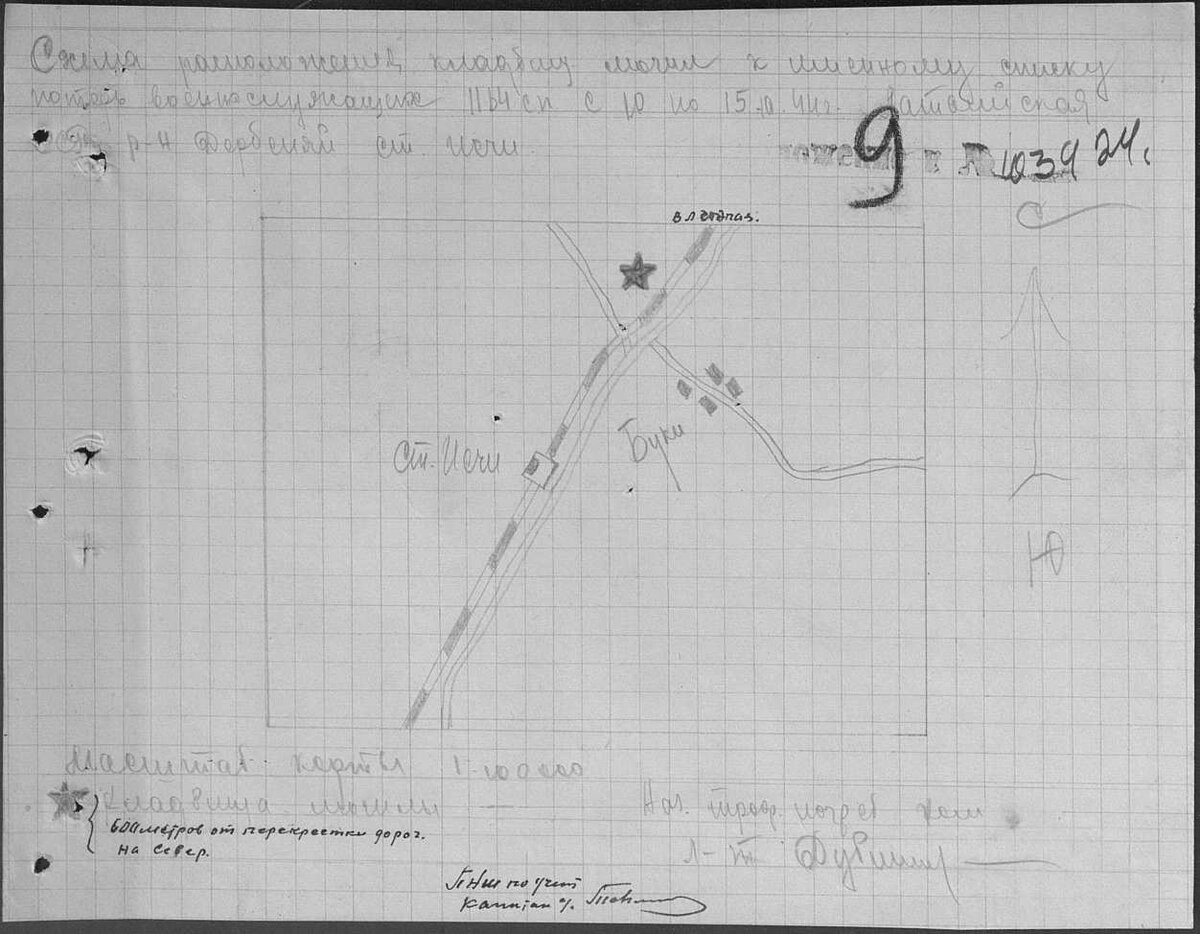 Схема расположения кладбищ могил к именному списку
потерь военнослужащих 1164 сп с 10 по 15.10.44г. Латвийская
ССР р-н Дербеняй ст Иечи.
9
1034 24.
С
Ст. Иечи
Буки
Ю
Масштаб карты 1-100000
кладбища могилы —
600 метров от перекрестки дорог.
на север.
Нач. троф. погреб ком
л-т
ПНШ по учёт
капитан